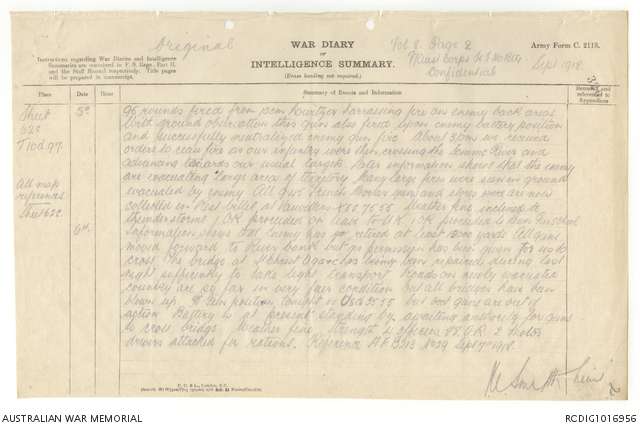 Original
WAR DIARY
OR
INTELLIGENCE SUMMARY.
(Erase heading not required.)
Vol 8. Page 2
Corps
Confidential
Army Form C. 2118.
Sept 1918.
Instructions regarding War Diaries and Intelligence
Summaries are contained in F. S. Regs., Part II.
and the Staff Manual respectively. Title pages
will be prepared in manuscript.
Place
Date
Hour
Summary of Events and Information
Remarks and
references to
Appendices
Sheet
62c
T10d.97.
All map
references
Sheet 62c
5th
95 rounds fired from 15cm howitzer harassing fire on enemy back areas
with good observation this gun also fired upon enemy battery position
and successfully neutralized enemy gun. At about 3pm we received
orders to cease fire as our infantry were then crossing the Somme River and
advancing towards our usual targets. Later information shows that the enemy
are evacuating large area of territory. Many large fires were seen in ground
evacuated by enemy. All guns Trench Mortar guns and stores are now
collected in rest billet at X26. 75.55 Weather fine inclined to
thunderstorms 1 OR proceeded on leave to U.K. 1 OR proceeded to Gun School
6th
Information shows that enemy has so far retired at least 5000 yards. All guns
moved forward to River bank but no permission has been given for us to
cross. The bridge at St Christ O9a has being been repaired during last
night sufficiently to take light transport. Roads in newly evacuated
country are so far in very fair condition but all bridges have been
blown up. Gun position tonight is 55.55 but our guns are out of
action. Battery is at present standing by awaiting authority for guns
to cross bridge. Weather fine. Strength 4 officers 88 O.R. 2 motor
drivers attached for rations. Reference A.F. B213 Sept 7th 1918.
D. D. & L., London, E.C.
AUSTRALIAN WAR MEMORIAL
RCDIG1016956